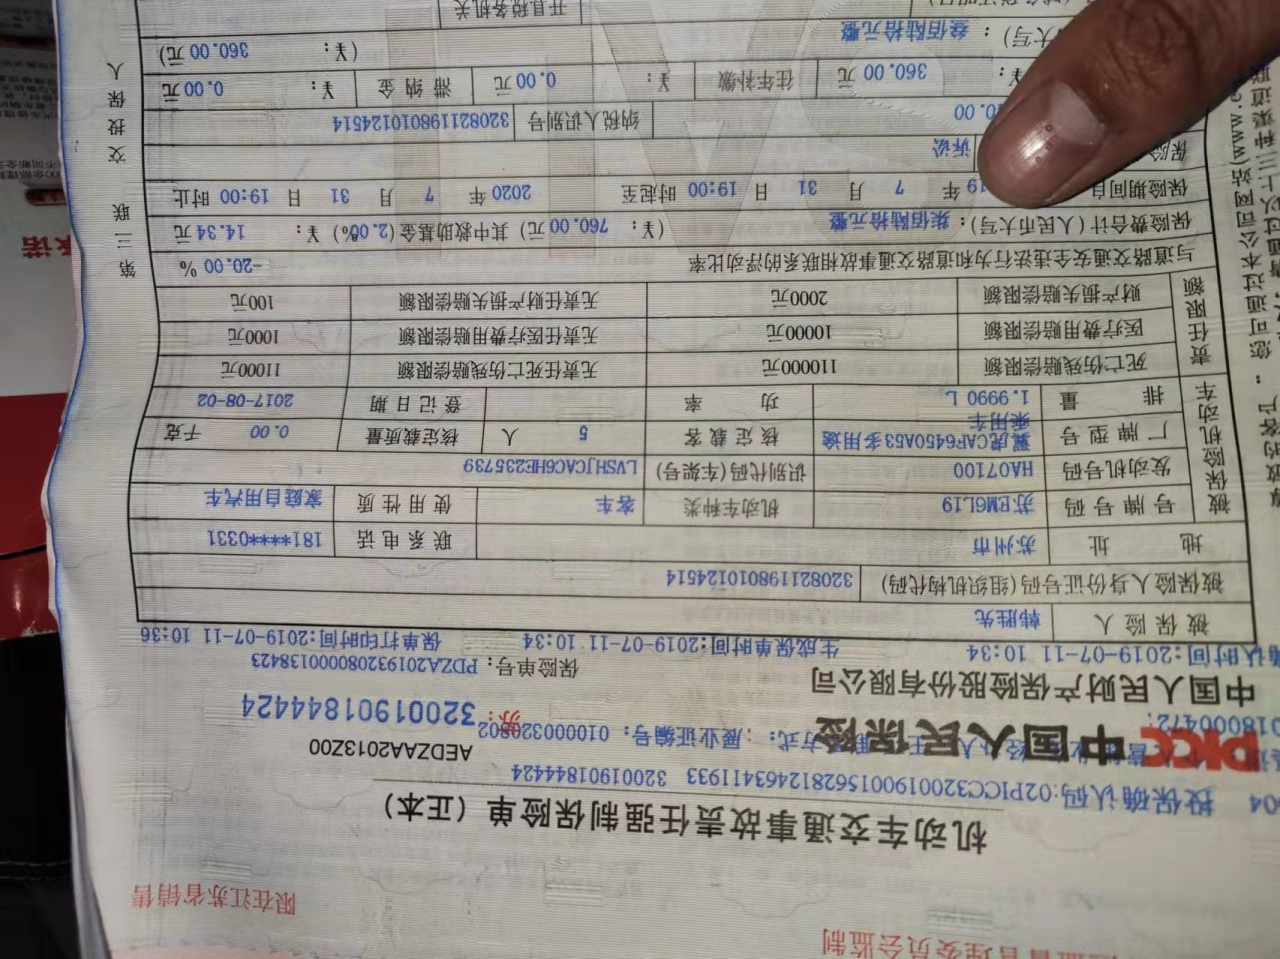 限在江苏省销售
机动车交通事故责任强制保险单（正本）
投保确认码:02PICC320019001562812463411933 3200190184424
AEDZAA2013Z00
PICC 中国人民保险
苏: 3200190184424
中国人民财产保险股份有限公司
保险单号: PDZA201932080000138423
确认时间:2019-07-11 10:34 生成保单时间:2019-07-11 10:34 保单打印时间:2019-07-11 10:36
被保险人 韩胜先
被保险人身份证号码(组织机构代码) 320821198010124514
地址 苏州市 联系电话 181****0331
被保险机动车
号牌号码 苏EM6L19 机动车种类 客车 使用性质 家庭自用汽车
发动机号码 HA07100 识别代码(车架号) LVSHJCAC6HE235739
厂牌型号 翼虎CAF6450A53多用途乘用车 核定载客 5 人 核定载质量 0.00 千克
排量 1.9990 L 功率 登记日期 2017-08-02
责任限额
死亡伤残赔偿限额 110000元 无责任死亡伤残赔偿限额 11000元
医疗费用赔偿限额 10000元 无责任医疗费用赔偿限额 1000元
财产损失赔偿限额 2000元 无责任财产损失赔偿限额 100元
与道路交通安全违法行为和道路交通事故相联系的浮动比率 -20.00 %
保险费合计(人民币大写): 柒佰陆拾元整 (¥: 760.00 元) 其中救助基金(2.00%) ¥: 14.34 元
保险期间自 19 年 7 月 31 日 19:00 时起至 2020 年 7 月 31 日 19:00 时止
诉讼
纳税人识别号 320821198010124514
¥: 360.00 元 往年补缴 ¥: 0.00 元 滞纳金 ¥: 0.00 元
大写): 叁佰陆拾元整 (¥: 360.00 元)
开具税务机关
第三联 交投保人